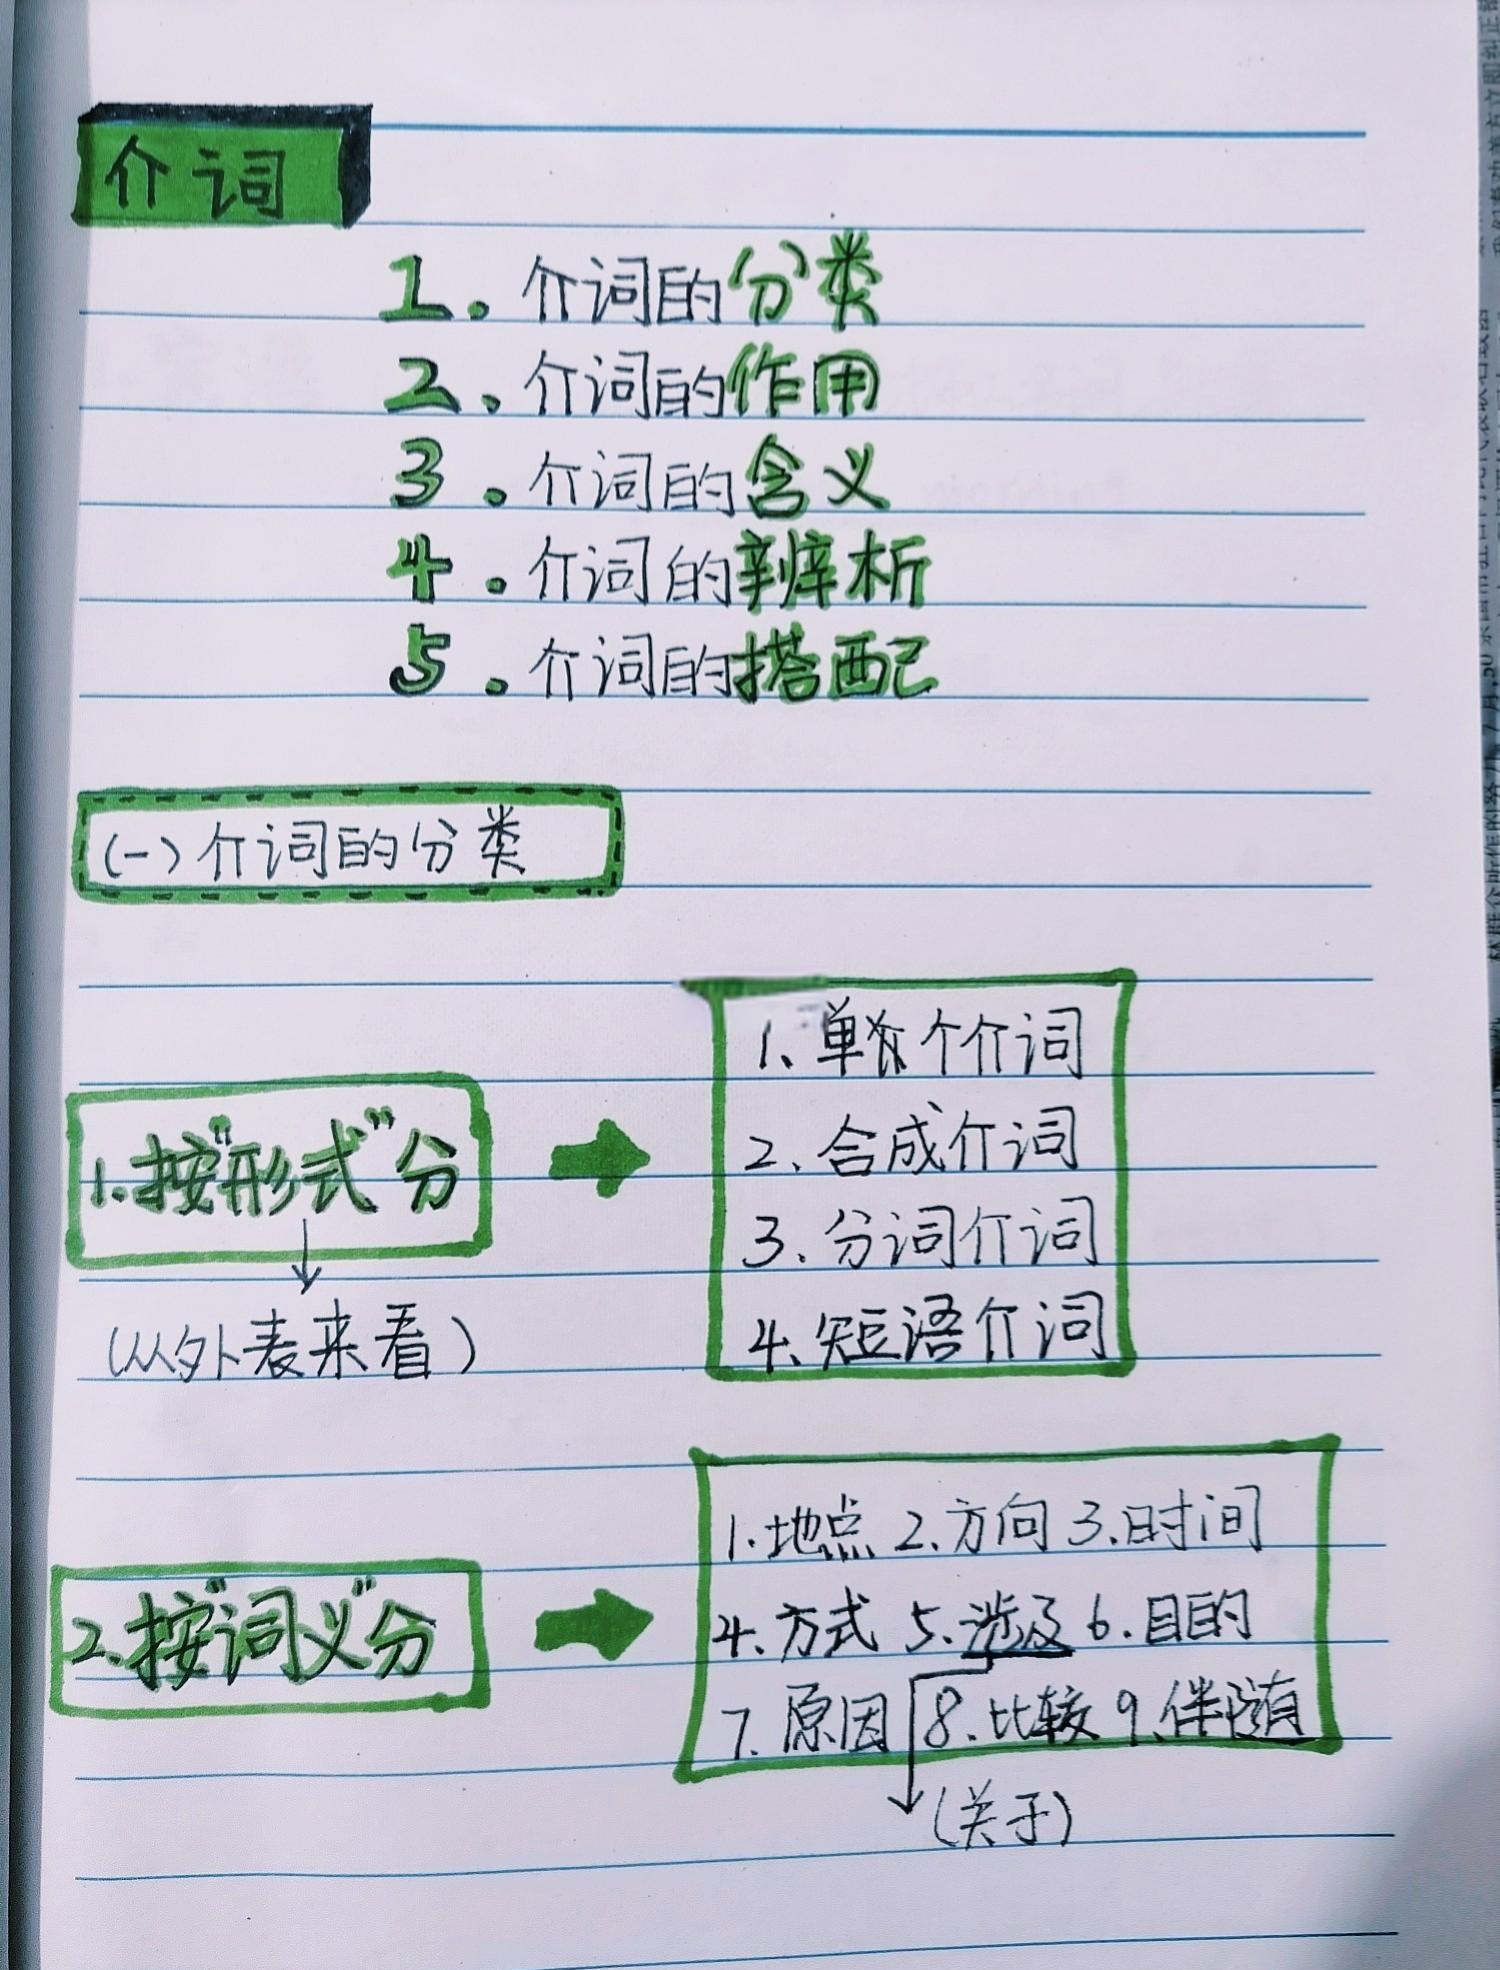 介词
1. 介词的分类
2、介词的作用
3. 介词的含义
4. 介词的辨析
5. 介词的搭配
(一)介词的分类
1.按"形式"分
(从外表来看)
1、单个介词
2、合成介词
3、分词介词
4、短语介词
2.按"词义"分
1.地点 2.方向 3.时间
4、方式 5.涉及 6.目的
7.原因 8.比较 9.伴随
(关于)